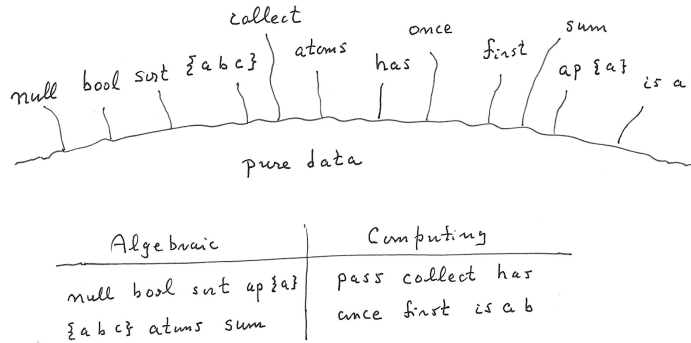 null bool sort {a b c} collect atoms has once first sum ap {a} is a
pure data
Algebraic
Computing
null bool sort ap {a}
{a b c} atoms sum
pass collect has
once first is a b